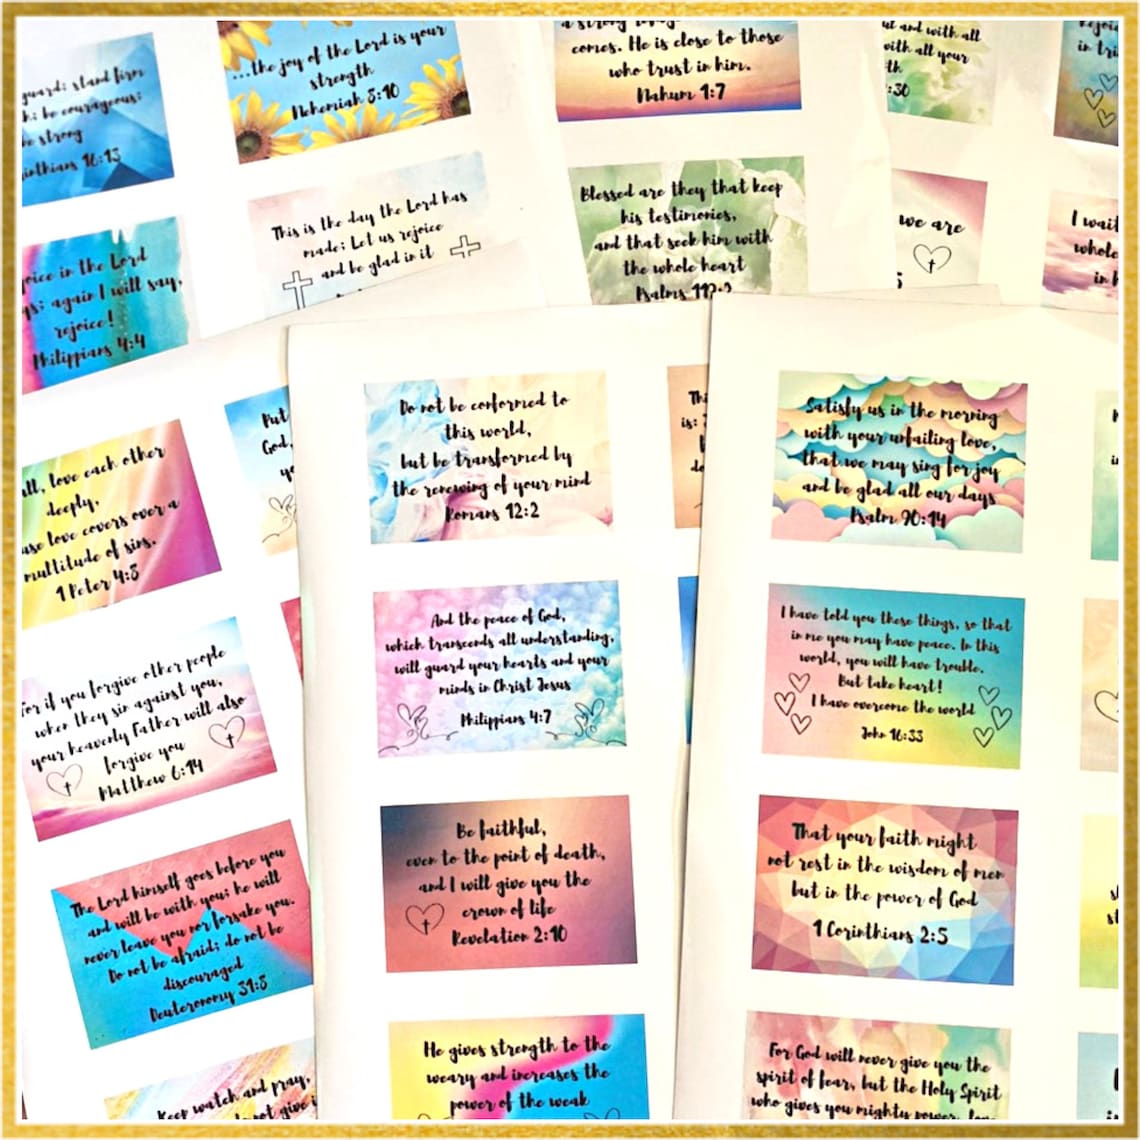 guard; stand firm
be courageous;
be strong
inthians 16:13
...the joy of the Lord is your
strength
Nehemiah 8:10
a strong
comes. He is close to those
who trust in him.
Nahum 1:7
and with all
with all your
:30
Rejoic
in tri
oice in the Lord
again I will say,
rejoice!
Philippians 4:4
This is the day the Lord has
made; Let us rejoice
and be glad in it
Blessed are they that keep
his testimonies,
and that seek him with
the whole heart
we are
5
I wait
whole
in h
all, love each other
deeply,
love covers over a
multitude of sins.
1 Peter 4:8
Put
God,
yo
Do not be conformed to
this world,
but be transformed by
the renewing of your mind
Romans 12:2
Thi
is:
do
Satisfy us in the morning
with your unfailing love,
that we may sing for joy
and be glad all our days
Psalm 90:14
in
For if you forgive other people
when they sin against you,
your heavenly Father will also
forgive you
Matthew 6:14
And the peace of God,
which transcends all understanding,
will guard your hearts and your
minds in Christ Jesus
Philippians 4:7
I have told you these things, so that
in me you may have peace. In this
world, you will have trouble.
But take heart!
I have overcome the world
John 16:33
The Lord himself goes before you
and will be with you; he will
never leave you nor forsake you.
Do not be afraid; do not be
discouraged
Deuteronomy 31:8
Be faithful,
even to the point of death,
and I will give you the
crown of life
Revelation 2:10
That your faith might
not rest in the wisdom of men
but in the power of God
1 Corinthians 2:5
s
st
Keep watch and pray,
not give i
He gives strength to the
weary and increases the
power of the weak
For God will never give you the
spirit of fear, but the Holy Spirit
who gives you mighty power,